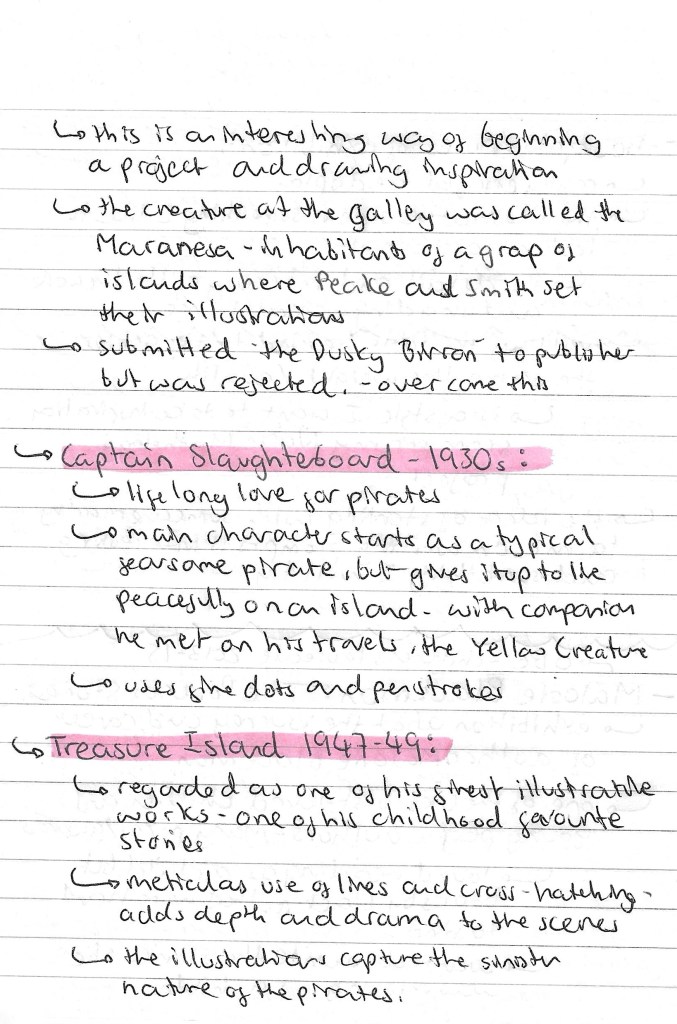 ↳ this is an interesting way of beginning
a project and drawing inspiration
↳ the creature at the galley was called the
Maranesa - inhabitants of a grap of
islands where Peake and Smith set
their illustrations
↳ submitted "the Dusky Birron" to publisher
but was rejected. - overcome this
↳ Captain Slaughteboard - 1930s:
↳ life long love for pirates
↳ main character starts as a typical
fearsome pirate, but gives it up to live
peacefully on an island - with companion
he met on his travels, the Yellow Creature
↳ uses fine dots and penstrokes
↳ Treasure Island 1947-49:
↳ regarded as one of his finest illustrative
works - one of his childhood favourite
stories
↳ meticulas use of lines and cross-hatching -
adds depth and drama to the scenes
↳ the illustrations capture the sinister
nature of the pirates.